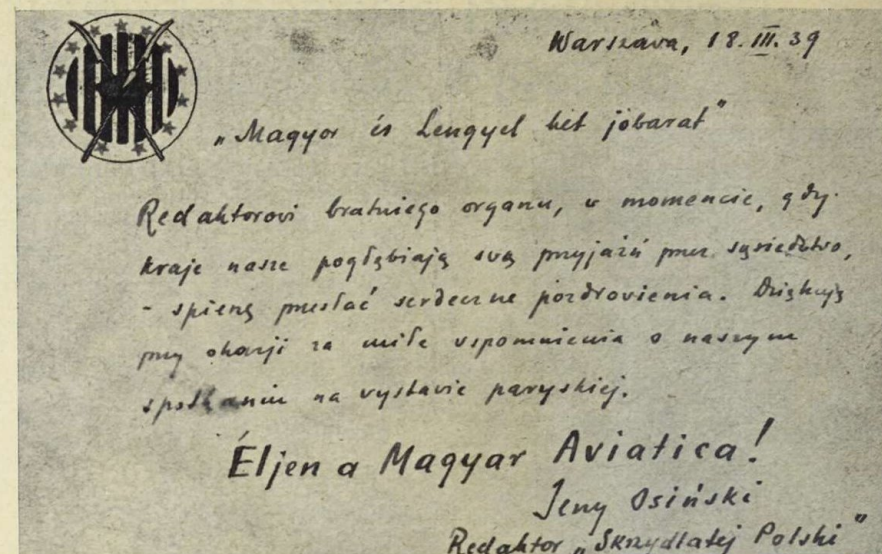 Warszawa, 18.III.39
„Magyor és Lengyel két jóbarat"
Redaktorowi bratniego organu, w momencie, gdy
kraje nasze pogłębiają swą przyjaźń przez sąsiedztwo,
- spieszę przesłać serdeczne pozdrowienia. Dziękuję
przy okazji za miłe wspomnienia o naszym
spotkaniu na wystawie paryskiej.
Éljen a Magyar Aviatica!
Jerzy Osiński
Redaktor „Skrzydlatej Polski"